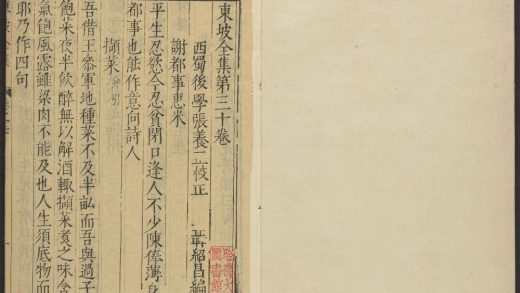 東坡全集第三十卷
西蜀後學張養校正
紹昌編
謝都事惠米
平生忍慾今忍貧閉口逢人不少陳俸薄身
都事也能作意向詩人
擷菜并引
吾借王參軍地種菜不及半畝而吾與過子
飽菜夜半飲醉無以解酒輙擷菜煮之味含
氣飽風露雖粱肉不能及也人生須底物而
耶乃作四句
東坡全集